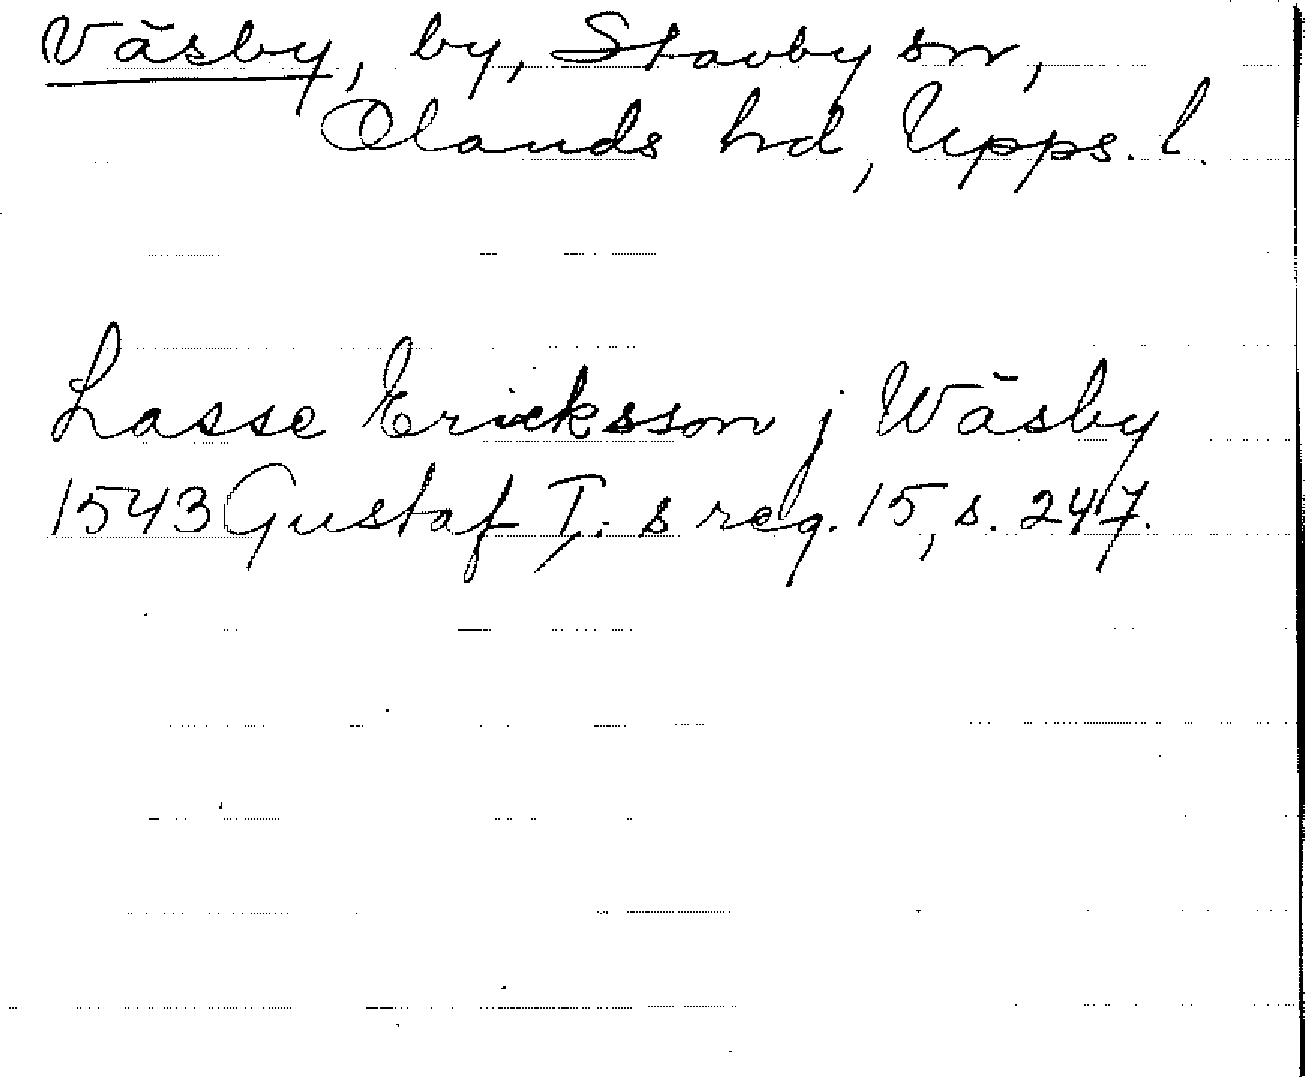 Väsby, by, Stavby sn,
Olands hd, Upps. l.
Lasse Ericksson j Wäsby
1543 Gustaf I:s reg. 15, s. 247.